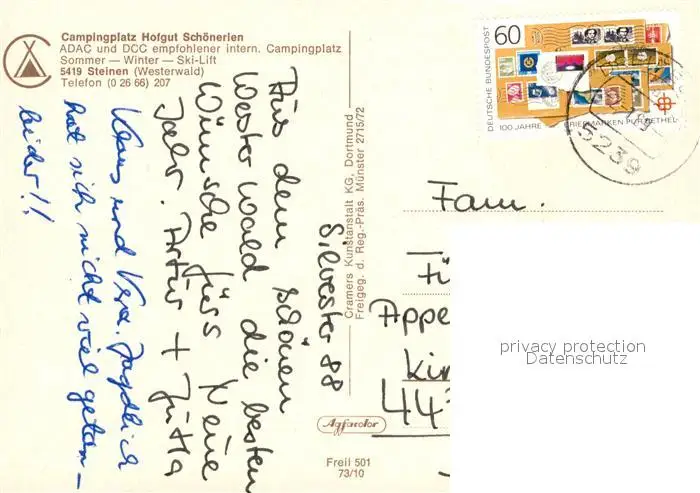 Campingplatz Hofgut Schönerlen
ADAC und DCC empfohlener intern. Campingplatz
Sommer — Winter — Ski-Lift
5419 Steinen (Westerwald)
Telefon (0 26 66) 207
Silvester 88
Aus dem schönen
Westerwald die besten
Wünsche fürs Neue
Jahr. Artur + Jutta
Klaus und Vera. Jagdlich
hat sich nicht viel getan –
leider!!
Cramers Kunstanstalt KG, Dortmund
Freigeg. d. Reg.-Präs. Münster 2715/72
Agfacolor
Freil 501
73/10
DEUTSCHE BUNDESPOST
60
100 JAHRE BRIEFMARKEN FÜR BETHEL
5239
Fam.
Fü
Appe
Kir
443
privacy protection
Datenschutz